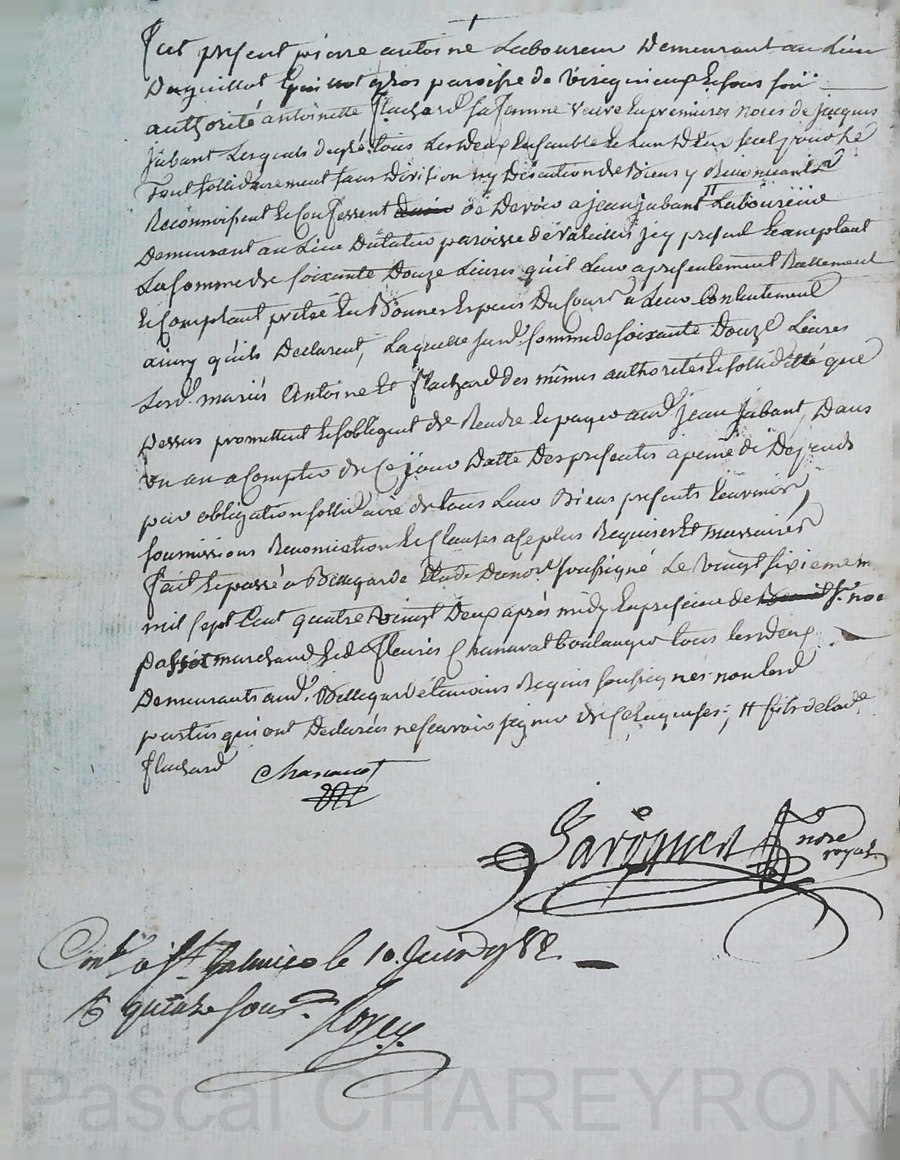 Fut present pierre antoine Laboureur Demeurant au Lieu
Duguillot gros paroisse de virigneux Et sous son
authorité antoinette flachard sa famme veuve En premieres noces de jacques
jabant Lesquels de gré tous Les deux Ensemble Et Lun Deux seul pour Le
Tout sollidairement sans Division ny Discution de Biens y Renonceants
Reconnoissent Et Confessent de Devoir a jean jabant Laboureur
Demeurant au Lieu paroisse de jcy present Et acceptant
La somme de soixante Douze Livres qu'il Leur a presentement Reellement
Et Comptant pretée En Bonnes Especes Du Cours a Leur Contentement
ainsy qu'ils Declarent, Laquelle susd. somme de soixante Douze Livres
Lesd. mariés Antoine Et flachard des mêmes authorités Et sollidité que
Dessus promettent Et sobligent de Rendre Et payer aud. jean jabant, Dans
un an a Compter de Ce jour Datte Des presentes a peine de Depends
par obligation sollidaire de tous Leur Biens presents Et avenir,
soumissions Renonciation Et Clauses a Ce plus Requises Et
fait Et passé a Bellegarde Etude Du not.e soussigné Le vingt sixieme m
mil sept Cent quatre vingt Deux après midy En presence de Sr.
passot marchand Et de fleuris Chanavat boulanger tous Les deux
Demeurants aud. Bellegarde temoins Requis soussignés non Lesd.
parties qui ont Declarées ne scavoir signer de Ce Enquises; # fils de Lad.
flachard
Chanavat
not.re
royal
Cont. a St. Galmier le 10 Juin 1782
R quinze sous.
Pascal CHAREYRON